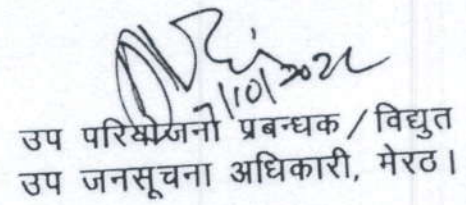 7/10/2022
उप परियोजना प्रबन्धक / विद्युत
उप जनसूचना अधिकारी, मेरठ।